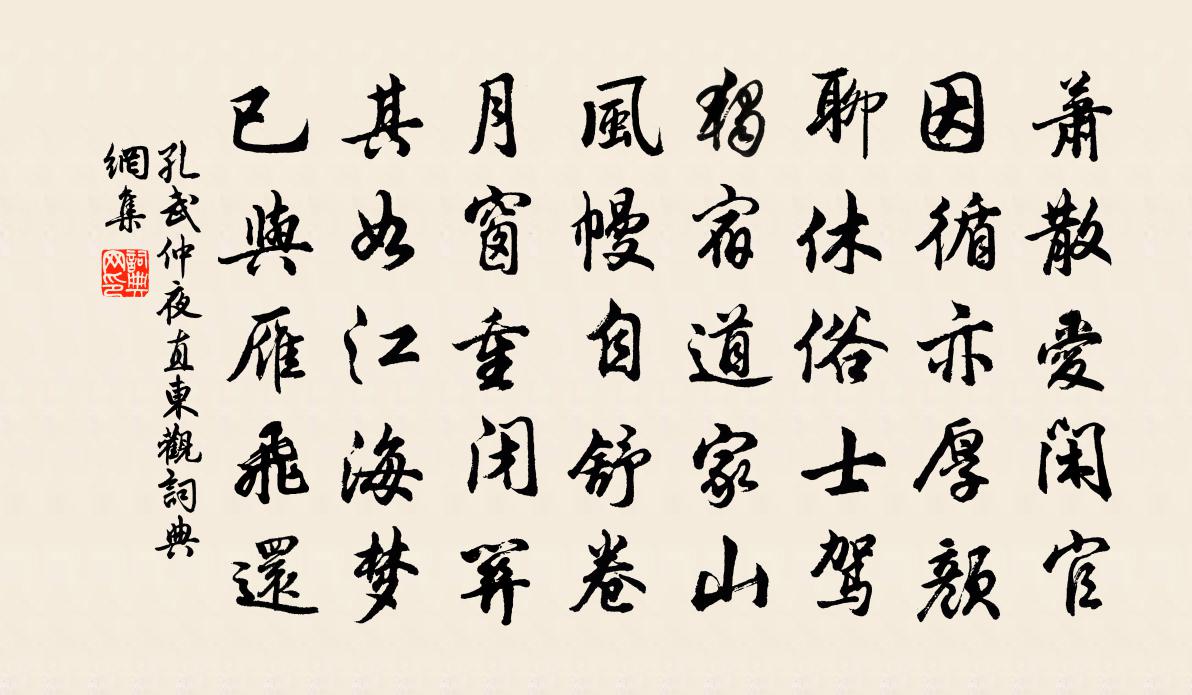 蕭散愛閑官
因循亦厚顏
聊休俗士駕
獨宿道家山
風幔自舒卷
月窗重闭關
其如江海梦
已與雁飛還
孔武仲夜直東觀詞典
網集
詞典
网印